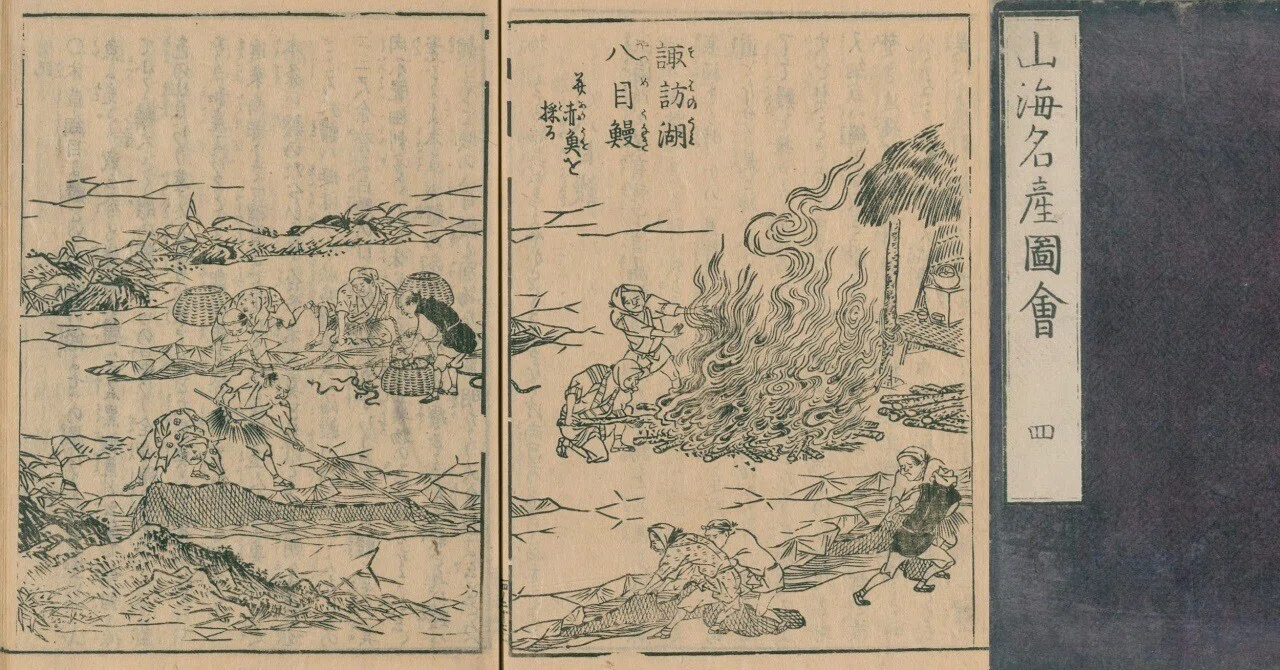 山海名產圖會
四
諏訪湖
八目鰻
并赤魚を
採る